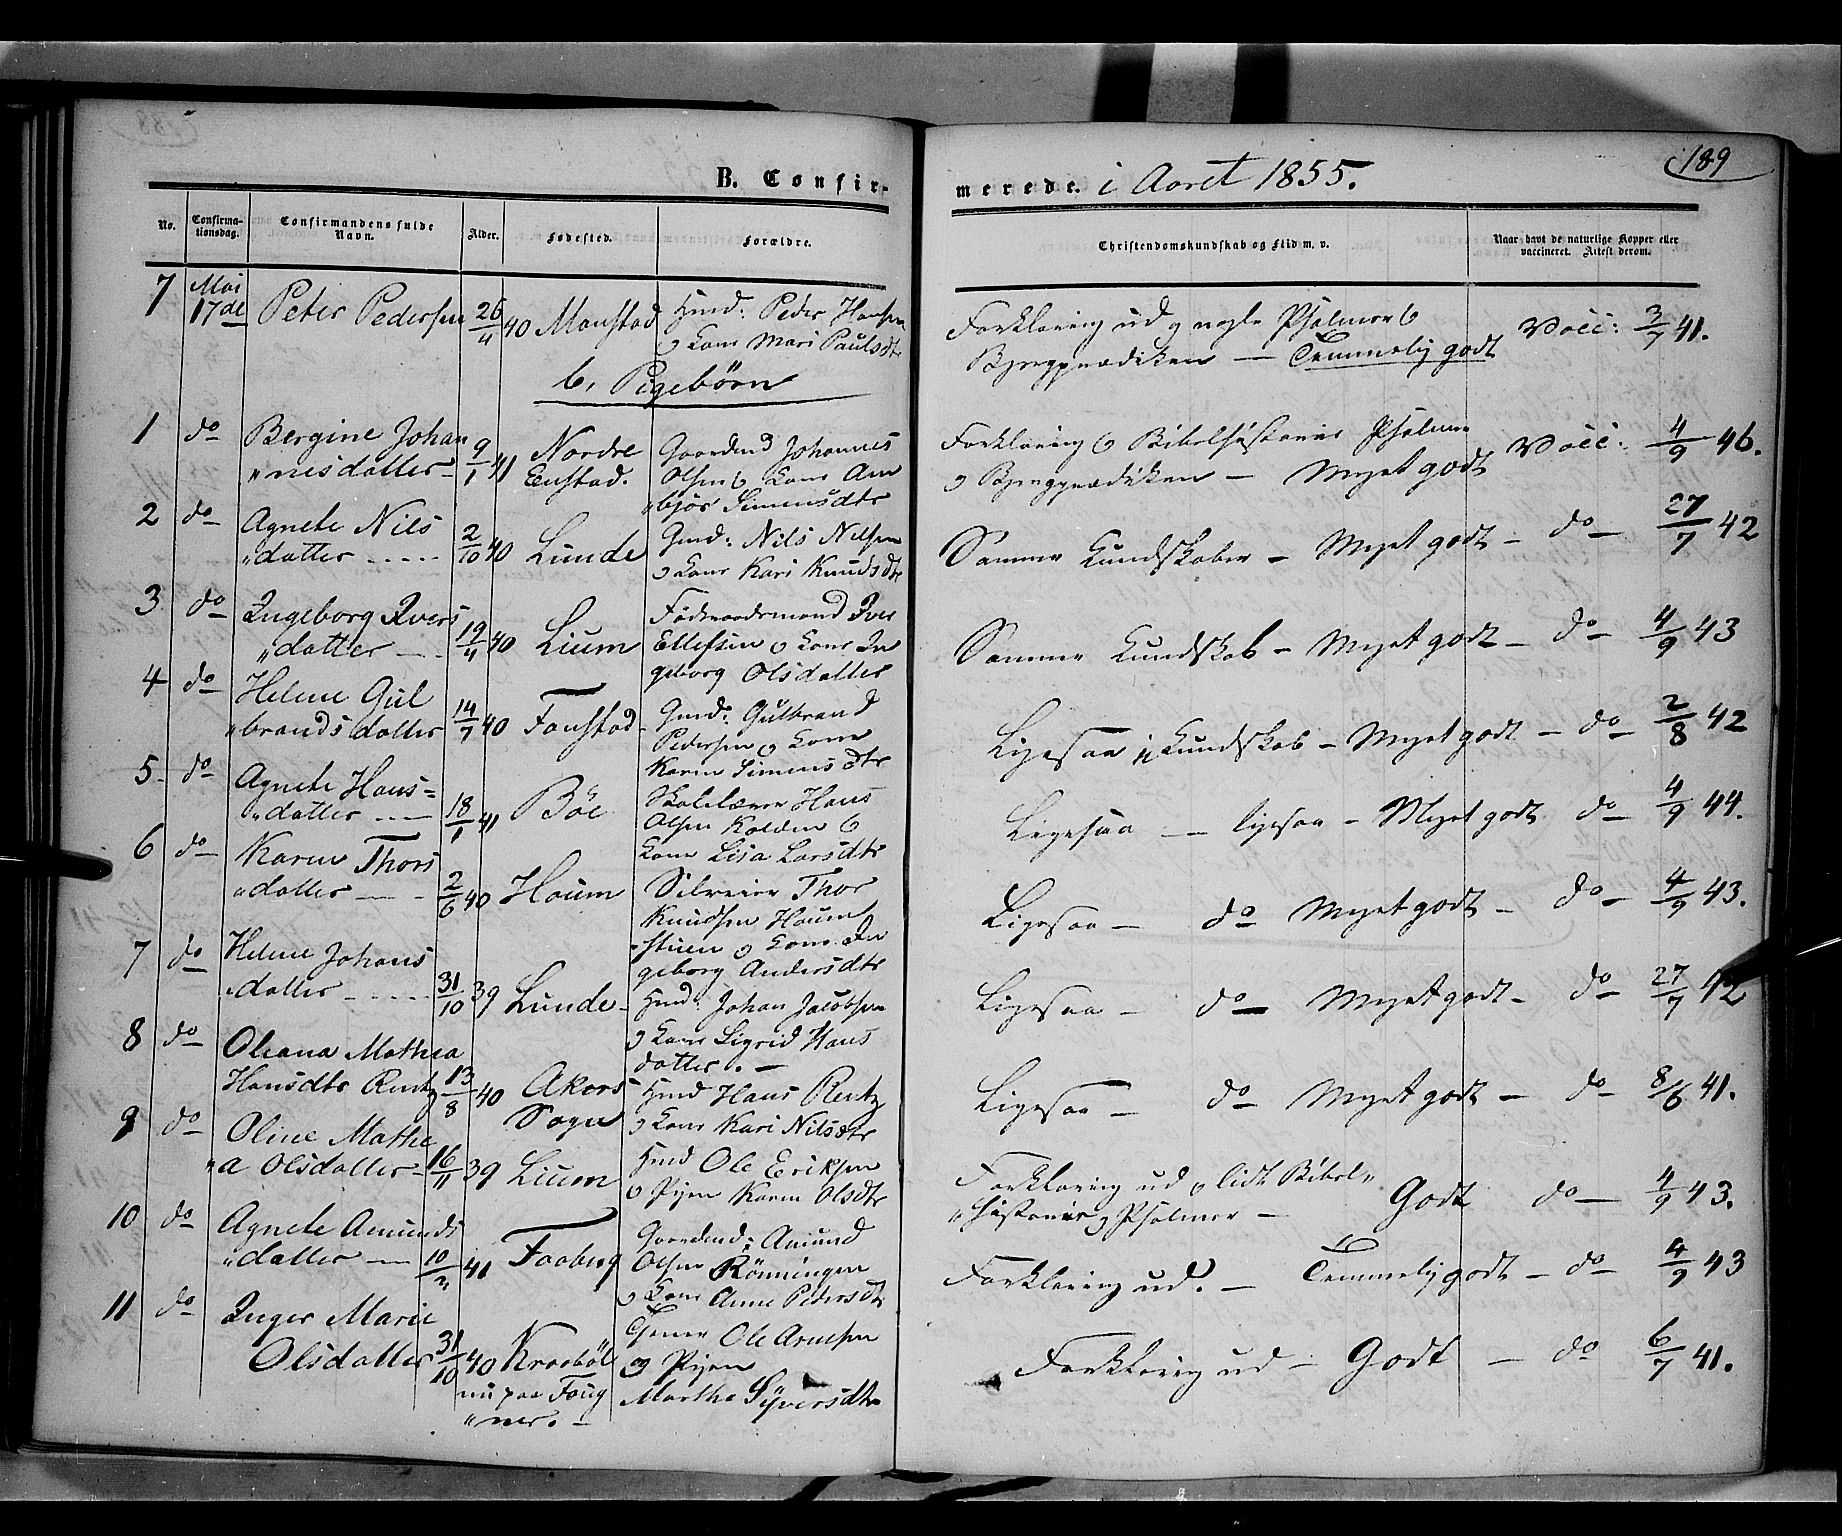 189
B. Confirmerede. i Aaret 1855.
No. Confirmationsdag. Confirmandens fulde Navn. Alder. Fødested. Forældre. Christendomskundskab og Flid m. v. Naar havt de naturlige Kopper eller vaccineret. Attest derom.
7 Mai 17de Peter Pedersen 26/4 40 Manstad Huusd: Peder Hansen
o Kone Mari Paulsdtr
Forklaring ud og nogle Psalmer o
Bjergprædiken — Temmelig godt Vacc: 3/7 41.
b, Pigebørn
1 do Bergine Johan
"nisdatter 9/1 41 Nordre
Enstad. Gaardmd Johannes
Olsen o Kone An
"bjør Simensdtr
Forklaring o Bibelhistorie Psalmer
o Bjergprædiken — Meget godt Vacc: 4/9 46.
2 do Agnete Nils
"datter 2/10 40 Lunde Gmd: Nils Nilsen
o Kone Kari Knudsdtr
Samme Kundskaber — Meget godt — do — 27/7 42
3 do Ingeborg Ivers
"datter 19/4 40 LiumFøderaadsmand Iver
Ellefsen o Kone In
geborg Olsdatter
Samme Kundskab — Meget godt — do — 4/9 43
4 do Helene Gul
"brandsdatter 14/7 40 Fanstad Gmd: Gulbrand
Pedersen o Kone
Karen Simensdtr
Ligesaa i Kundskab — Meget godt — do — 2/8 42
5 do Agnete Hans=
"datter 18/1 41 Böe Skolelærer Hans
Olsen Kolden o
Kone Lisa Larsdtr
Ligesaa — ligesaa — Meget godt do — 4/9 44.
6 do Karen Thors
"datter 2/6 40 Houm Selveier Thor
Knudsen Houm
"stuen o Kone In
geborg Andersdtr
Ligesaa — do Meget godt — do — 4/9 43.
7 do Helene Johans
"datter 31/10 39 Lunde Huusd: Johan Jacobsen
o Kone Sigrid Hans
datter. —
Ligesaa — do — Meget godt — do — 27/7 42
8 do Oleana Mathea
Hansdtr Rentz 13/8 40 Akers
Sogn Huusd Hans Rentz
o Kone Kari Nilsdtr
Ligesaa — do Meget godt — do — 8/6 41.
9 do Oline Mathe
"a Olsdatter 16/11 39 Lium Huusd Ole Eriksen
o Pigen Karen Olsdtr
Forklaring ud o lidt Bibel"
"historie og Psalmer — Godt do — 4/9 43.
10 do Agnete Amunds
"datter 10/2 41 Faaberg Gaardmd: Amund
Olsen Rönningen
o Kone Anne Pedersdtr
Forklaring ud. — Temmelig godt — do — 4/9 43
11 do Inger Marie
Olsdatter 31/10 40 Kraabøl
nu paa Foug
"ner. — Tjener Ole Arnesen
og Pigen
Marthe Syversdtr
Forklaring ud — Godt — do 6/7 41.